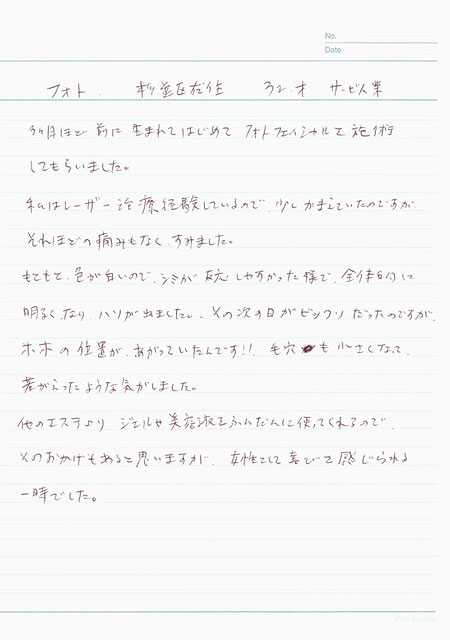 No.
Date
フォト. 杉並区在住 32才 サービス業
3ヶ月ほど前に生まれてはじめてフォトフェイシャルを施術
してもらいました。
私はレーザー治療経験しているので、少しかまえていたのですが、
それほどの痛みもなく、すみました。
もともと、色が白いので、シミが反応しやすかった様で、全体的に
明るくなり、ハリが出ました。その次の日がビックリだったのですが、
ホホの位置が、あがっていたんです!! 毛穴も小さくなって、
若がえったような気がしました。
他のエステよりジェルや美容液をふんだんに使ってくれるので、
そのおかげもあると思いますが、女性として喜びを感じられる
一時でした。